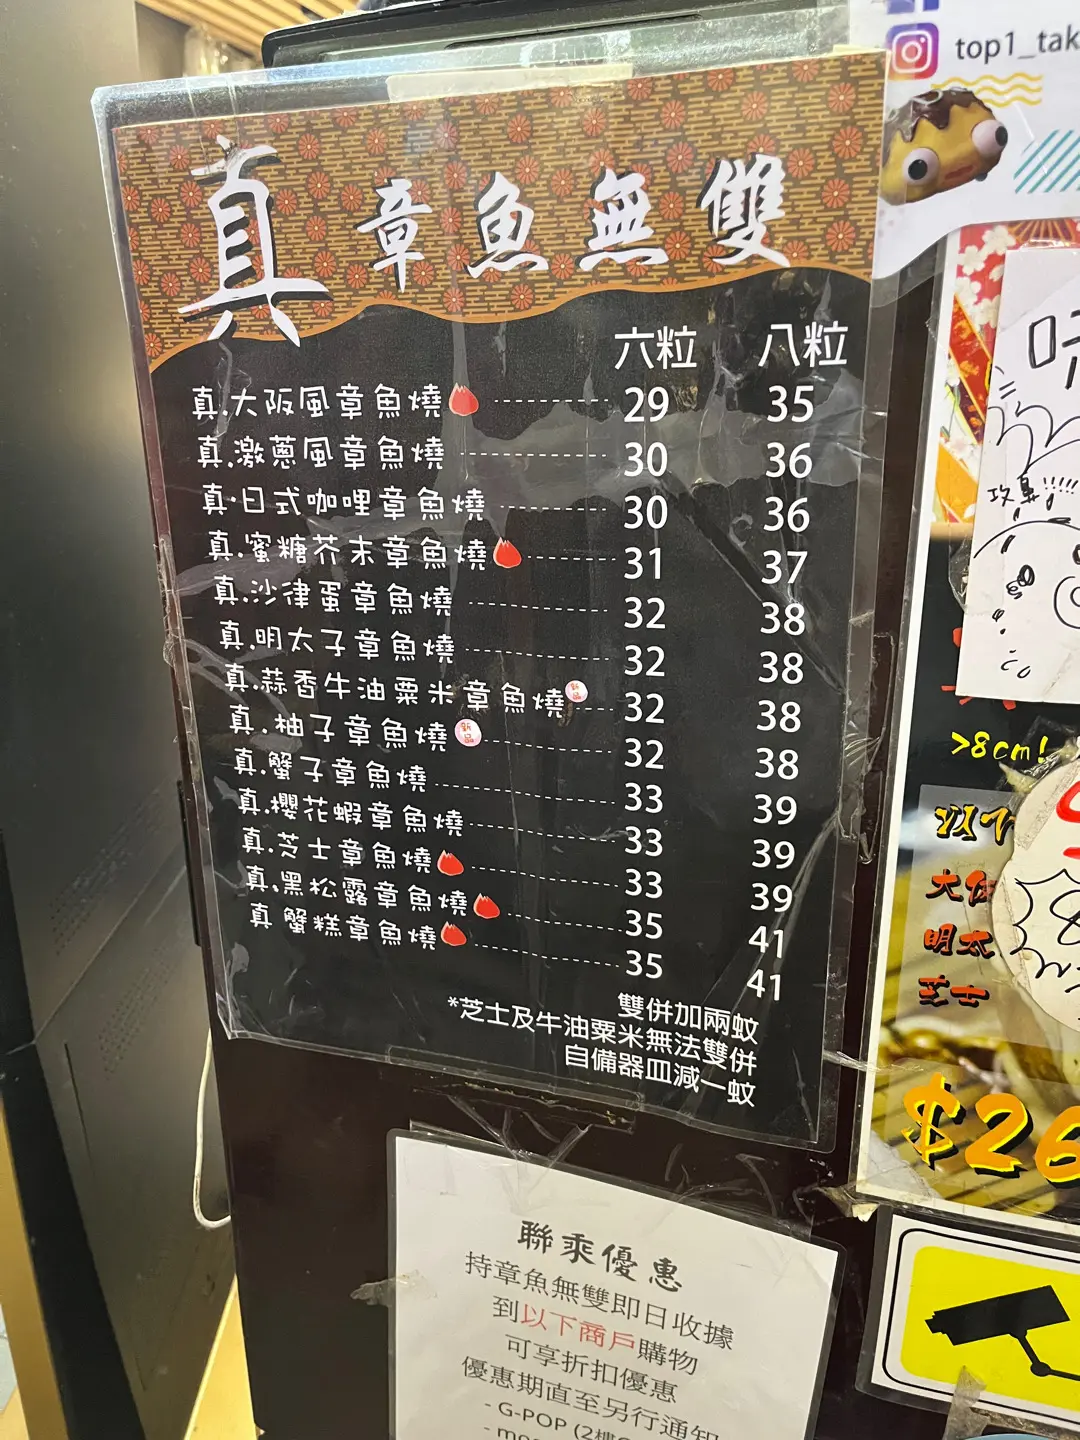 top1_tak
真 章魚無雙
六粒 八粒
真.大阪風章魚燒 29 35
真.激蔥風章魚燒 30 36
真.日式咖哩章魚燒 30 36
真.蜜糖芥末章魚燒 31 37
真.沙律蛋章魚燒 32 38
真.明太子章魚燒 32 38
真.蒜香牛油粟米章魚燒 新品 32 38
真.柚子章魚燒 新品 32 38
真.蟹子章魚燒 33 39
真.櫻花蝦章魚燒 33 39
真.芝士章魚燒 33 39
真.黑松露章魚燒 35 41
真 蟹糕章魚燒 35 41
雙併加兩蚊
*芝士及牛油粟米無法雙併
自備器皿減一蚊
>8cm!
明太
芝士
$26
聯乘優惠
持章魚無雙即日收據
到以下商戶購物
可享折扣優惠
優惠期直至另行通知
- G-POP (2樓